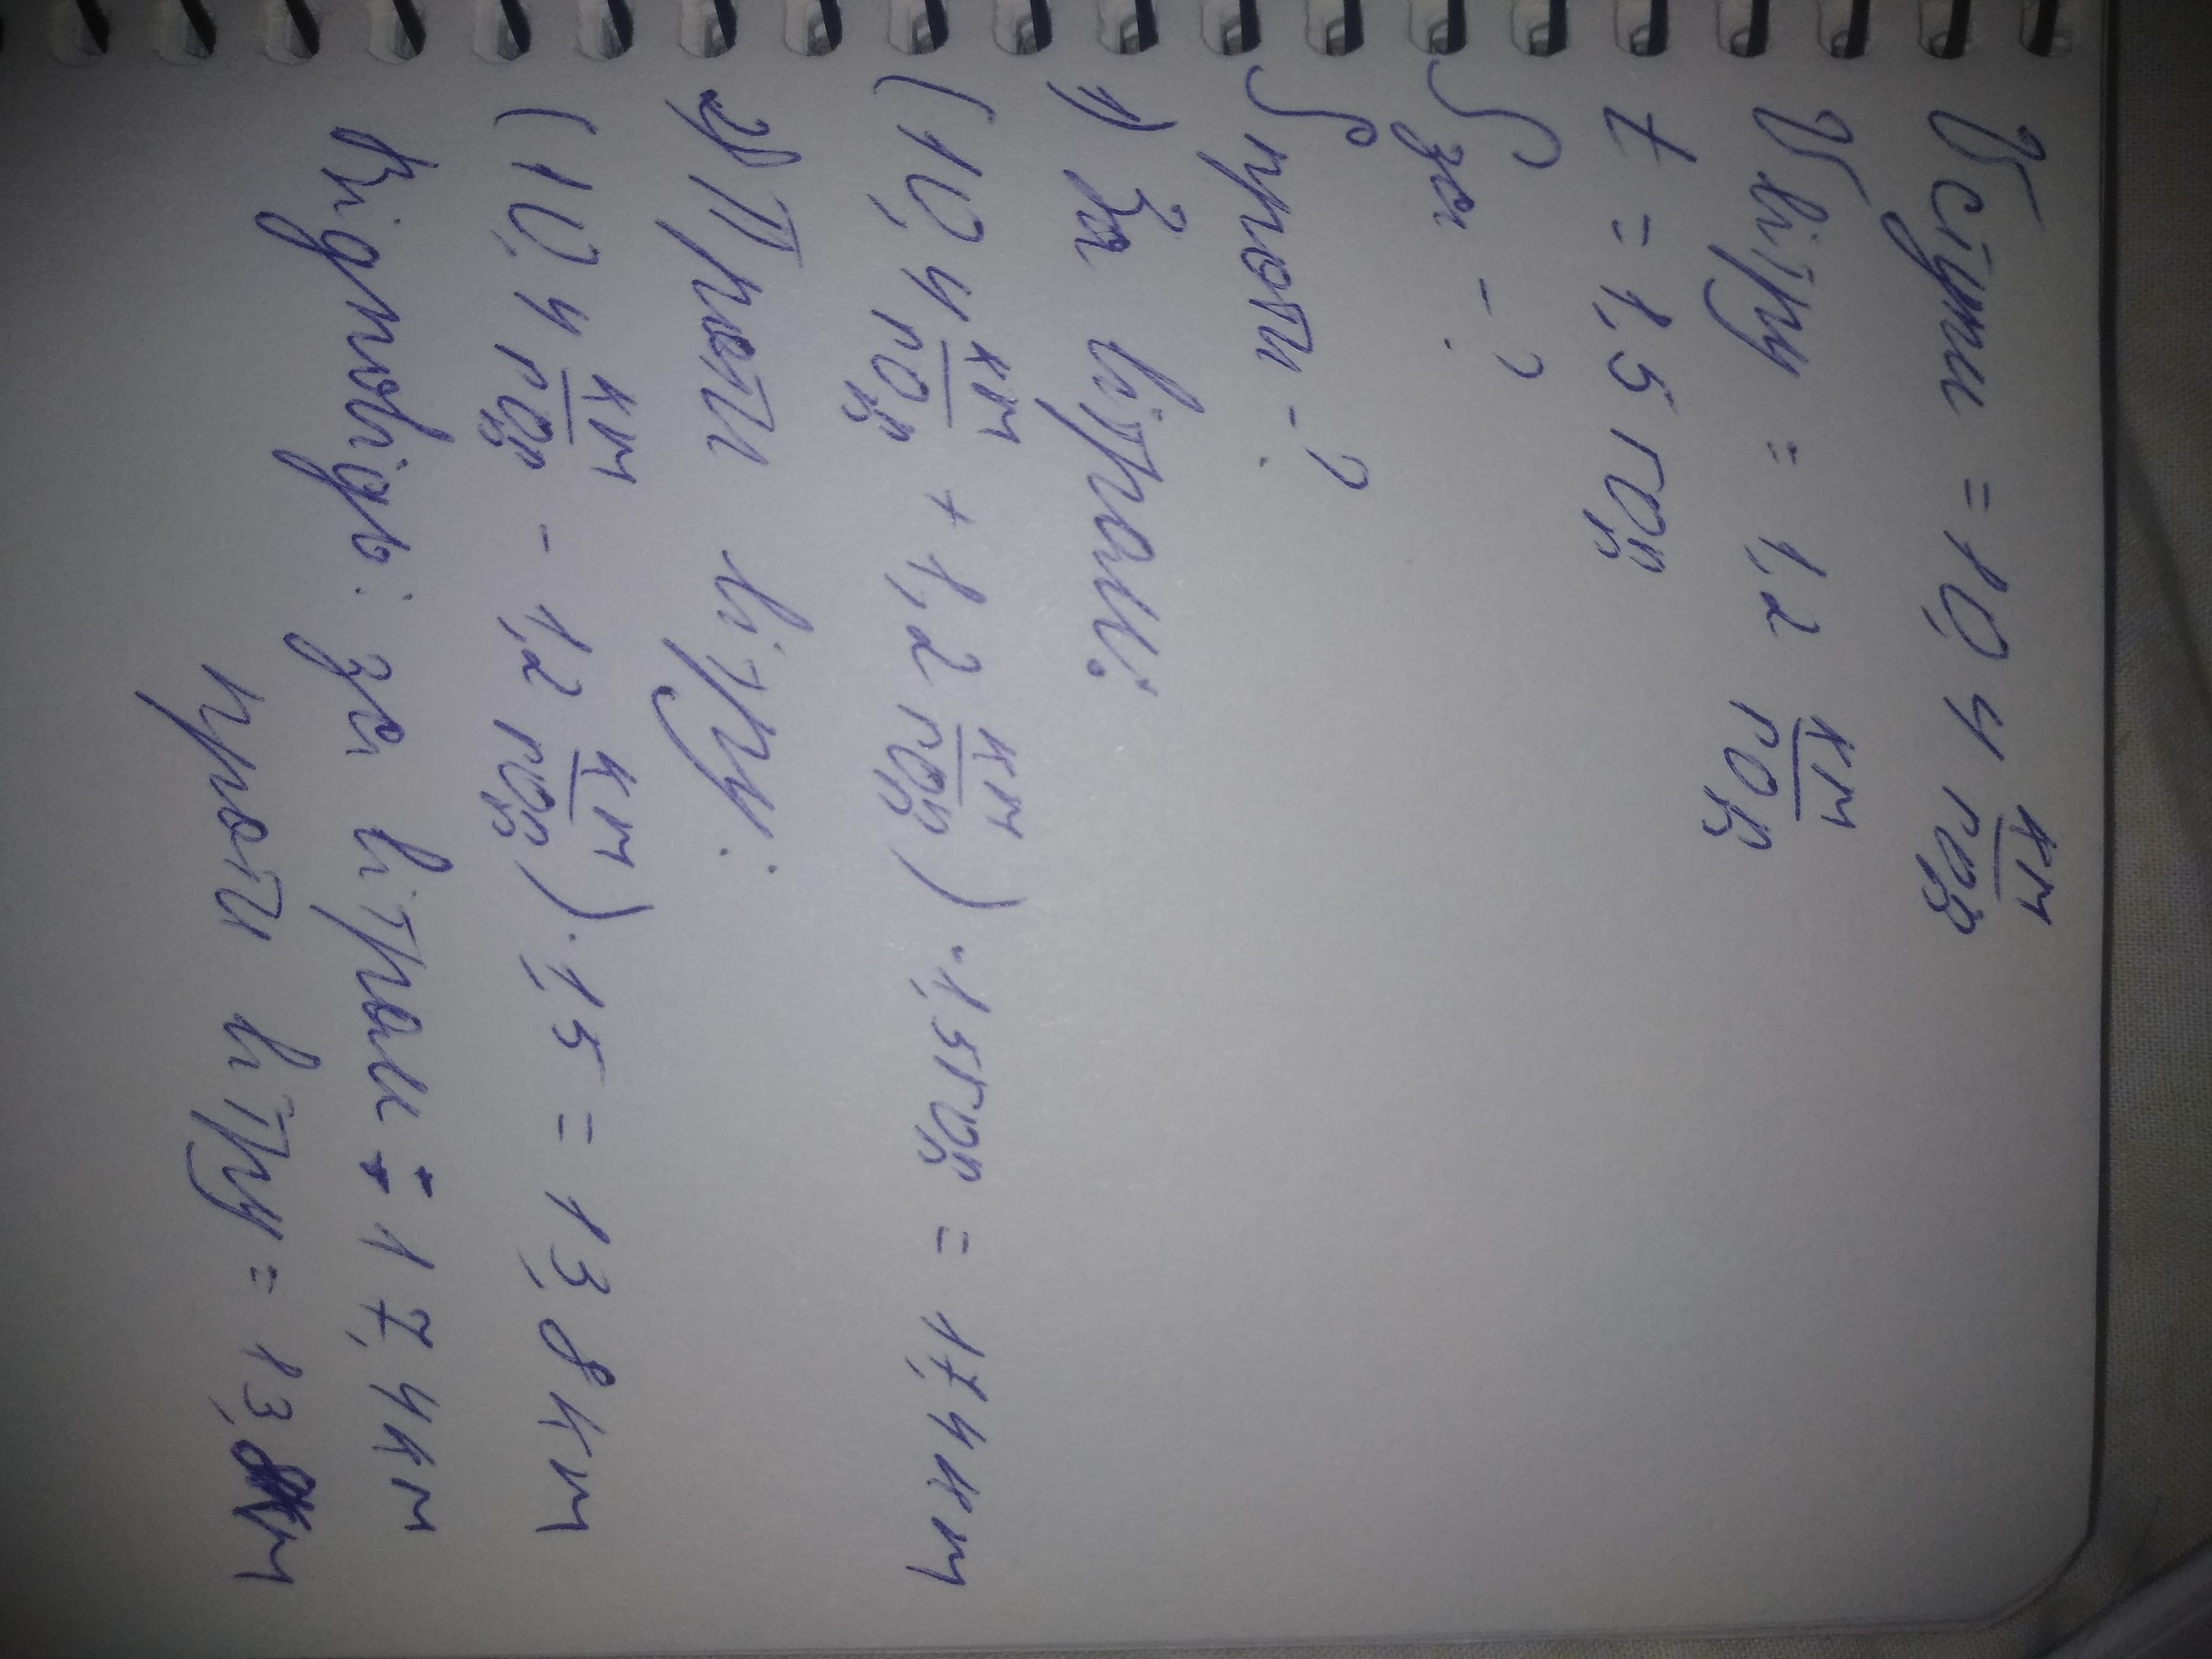 V єгути = 10,4 км/год
V вітру = 1,2 км/год
t = 1,5 год
S за - ?
S проти - ?
1) За вітром:
(10,4 км/год + 1,2 км/год) · 1,5 год = 17,4 км
2) Проти вітру:
(10,4 км/год - 1,2 км/год) · 1,5 = 13,8 км
Відповідь: за вітром = 17,4 км
проти вітру = 13,8 км